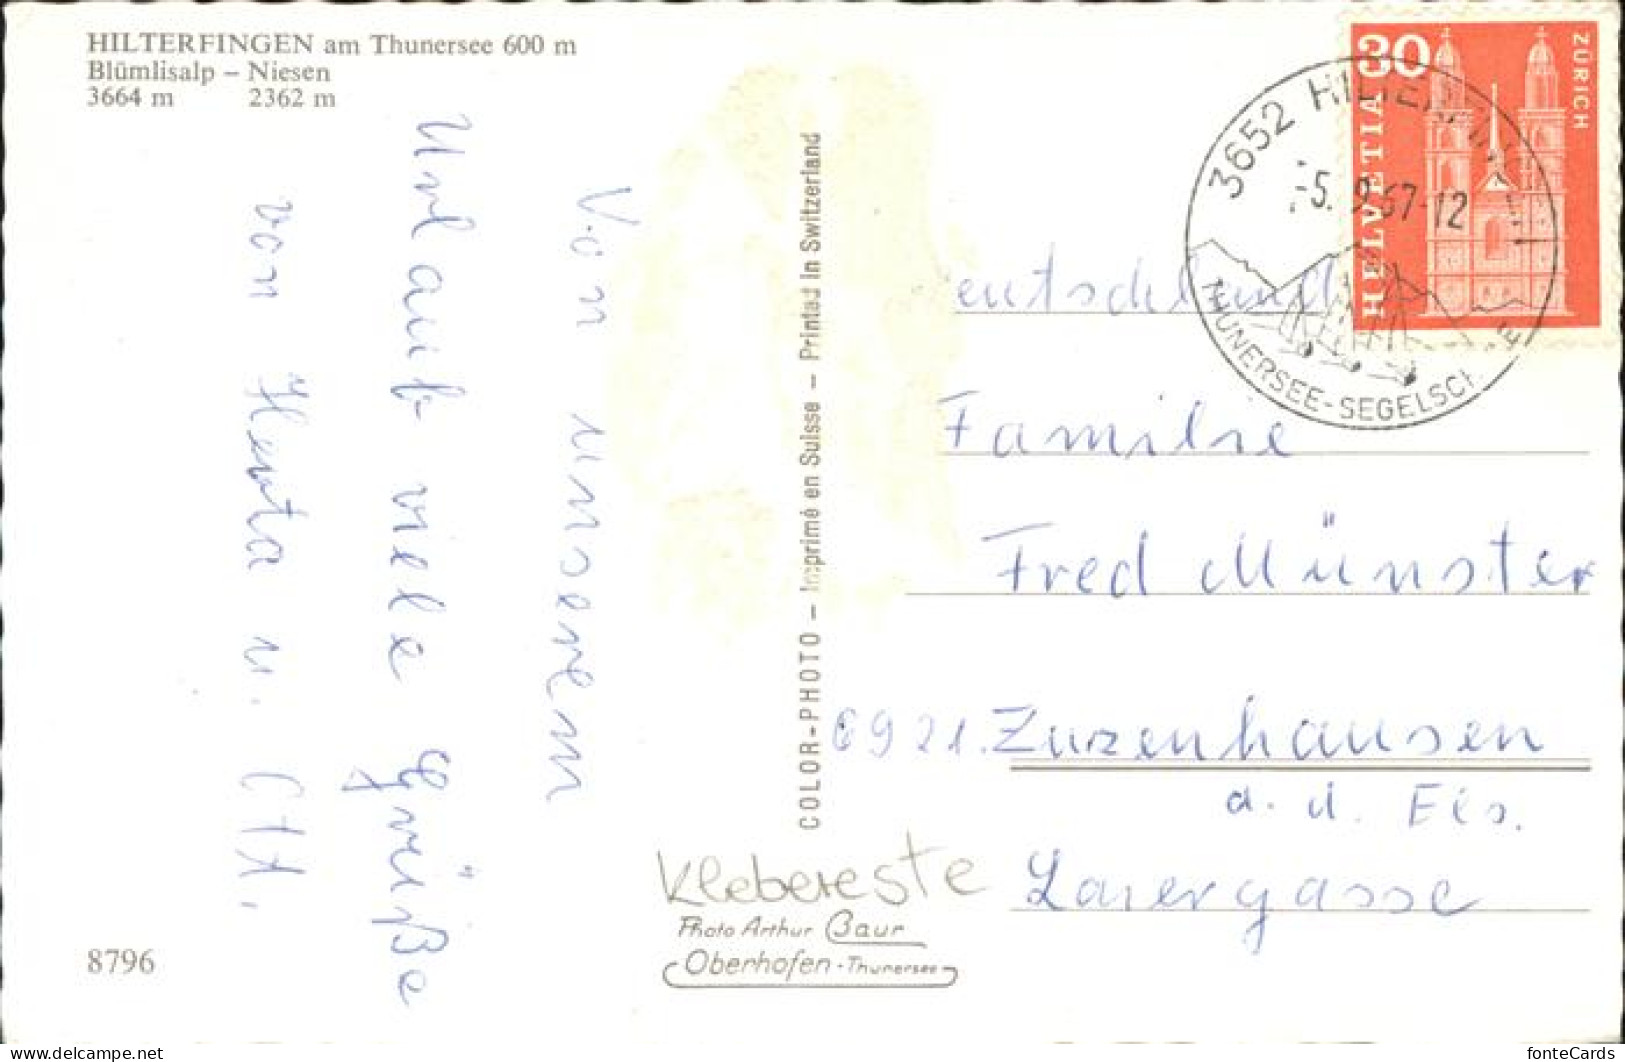 HILTERFINGEN am Thunersee 600 m
Blümlisalp – Niesen
3664 m 2362 m
Von unserem
Urlaub viele Grüße
von Herta u.
8796
COLOR-PHOTO – Imprimé en Suisse – Printed in Switzerland
Klebereste
Photo Arthur Baur
Oberhofen - Thunersee
HELVETIA
30
ZÜRICH
3652 HILTERFINGEN
-5. 9. 67-12
THUNERSEE-SEGELSCHULE
eutschland
Familie
Fred Münster
6921. Zuzenhausen
a. d. Els.
gasse